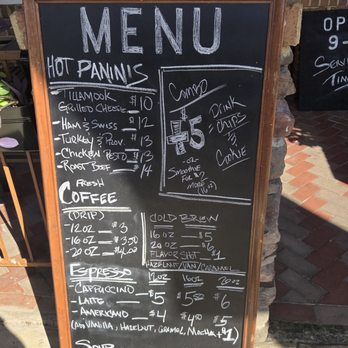 MENU
HOT PANINIS
- TILLAMOOK
GRILLED CHEESE - $10
- HAM & SWISS - $12
- TURKEY & PROV. - $13
- CHICKEN PESTO - $13
- ROAST BEEF - $14
COMBO
+$5
DRINK
+ CHIPS
& COOKIE
- OR -
SMOOTHIE
FOR $2
MORE
FRESH
COFFEE
(DRIP)
- 12 OZ - $3
- 16 OZ - $3.50
- 20 OZ - $4.00
COLD BREW
16 OZ - $5
20 OZ - $6
FLAVOR SHOT - $1
HAZELNUT/VAN/CARAMEL
ESPRESSO 12oz 16oz 20oz
- CAPPUCCINO
- LATTE - $5 $5.50 $6
- AMERICANO - $4 $4.50 $5
(ADD VANILLA, HAZELNUT, CARAMEL, MOCHA + $1)
SOUP
OP
9-
SERVI
TIN